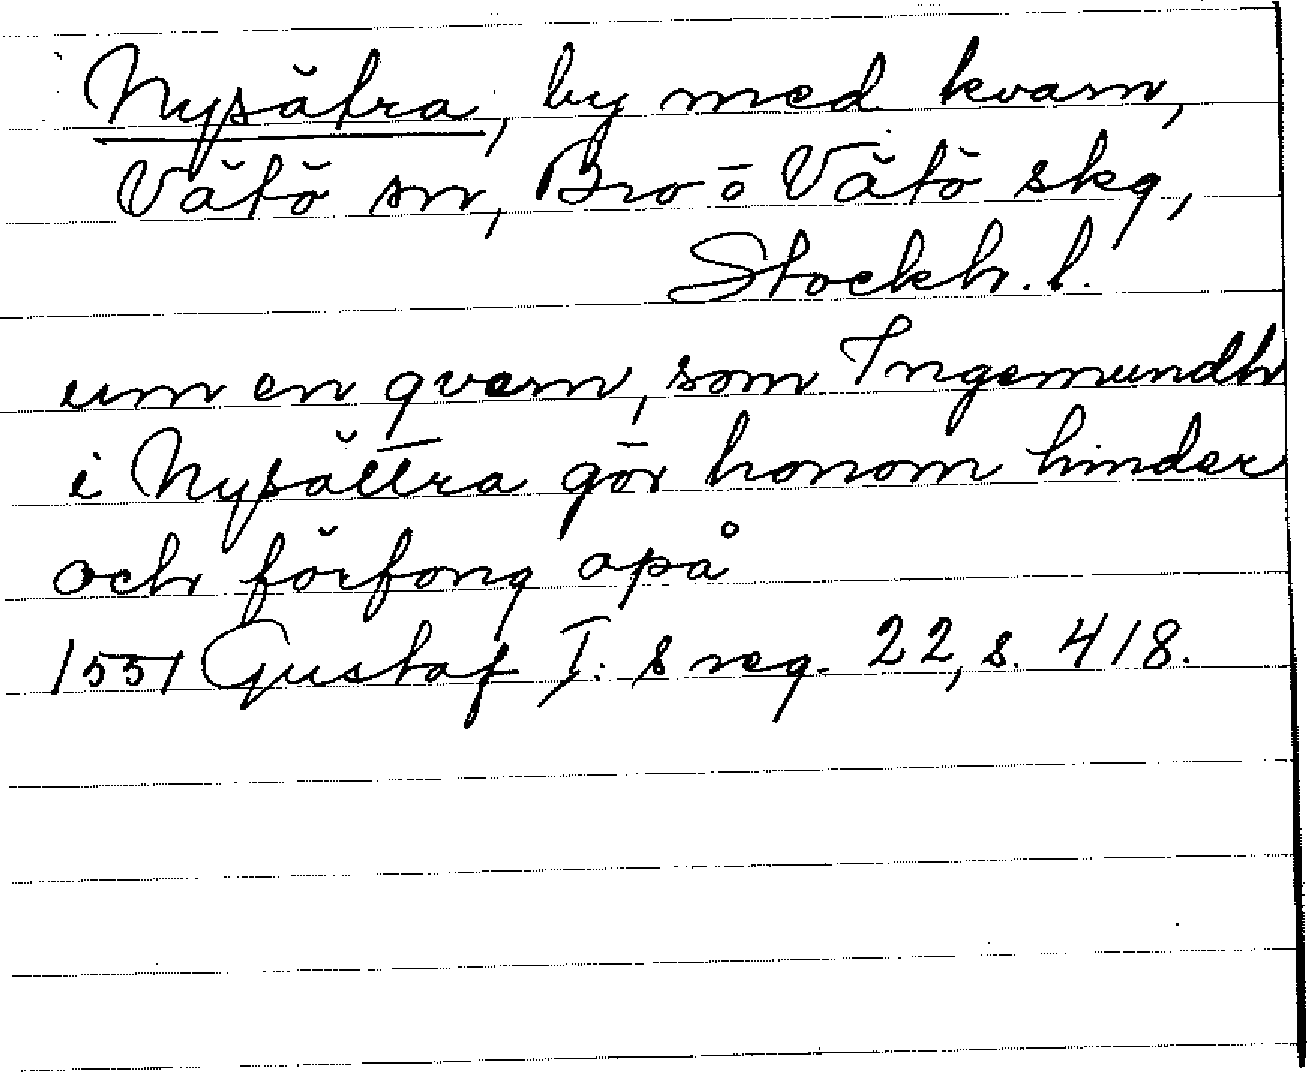 Nysätra, by med kvarn,
Vätö sn, Bro o Vätö skg,
Stockh. l.
um en qvern, som Ingemundh
i Nysättra gör honom hinder
och förfong opå
1551 Gustaf I:s reg. 22, s. 418.